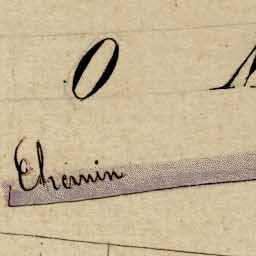 O M
Chemin